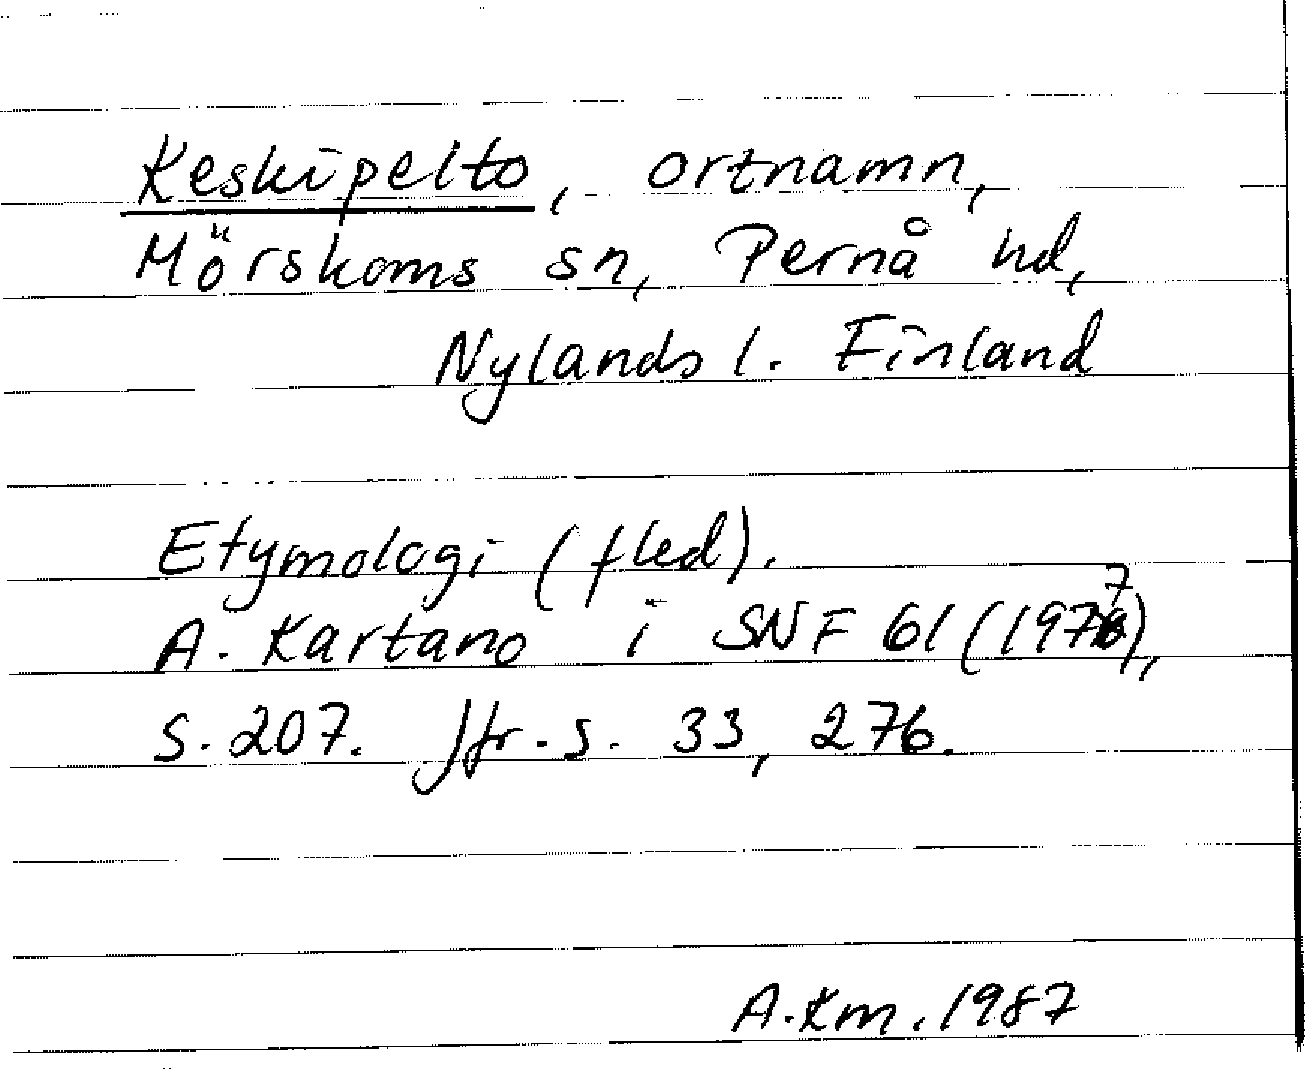 Keskipelto, ortnamn,
Mörskoms sn, Pernå hd,
Nylands l. Finland
Etymologi (fled).
A. Kartano i SNF 61 (1977),
s. 207. Jfr. s. 33, 276.
A.Km. 1987